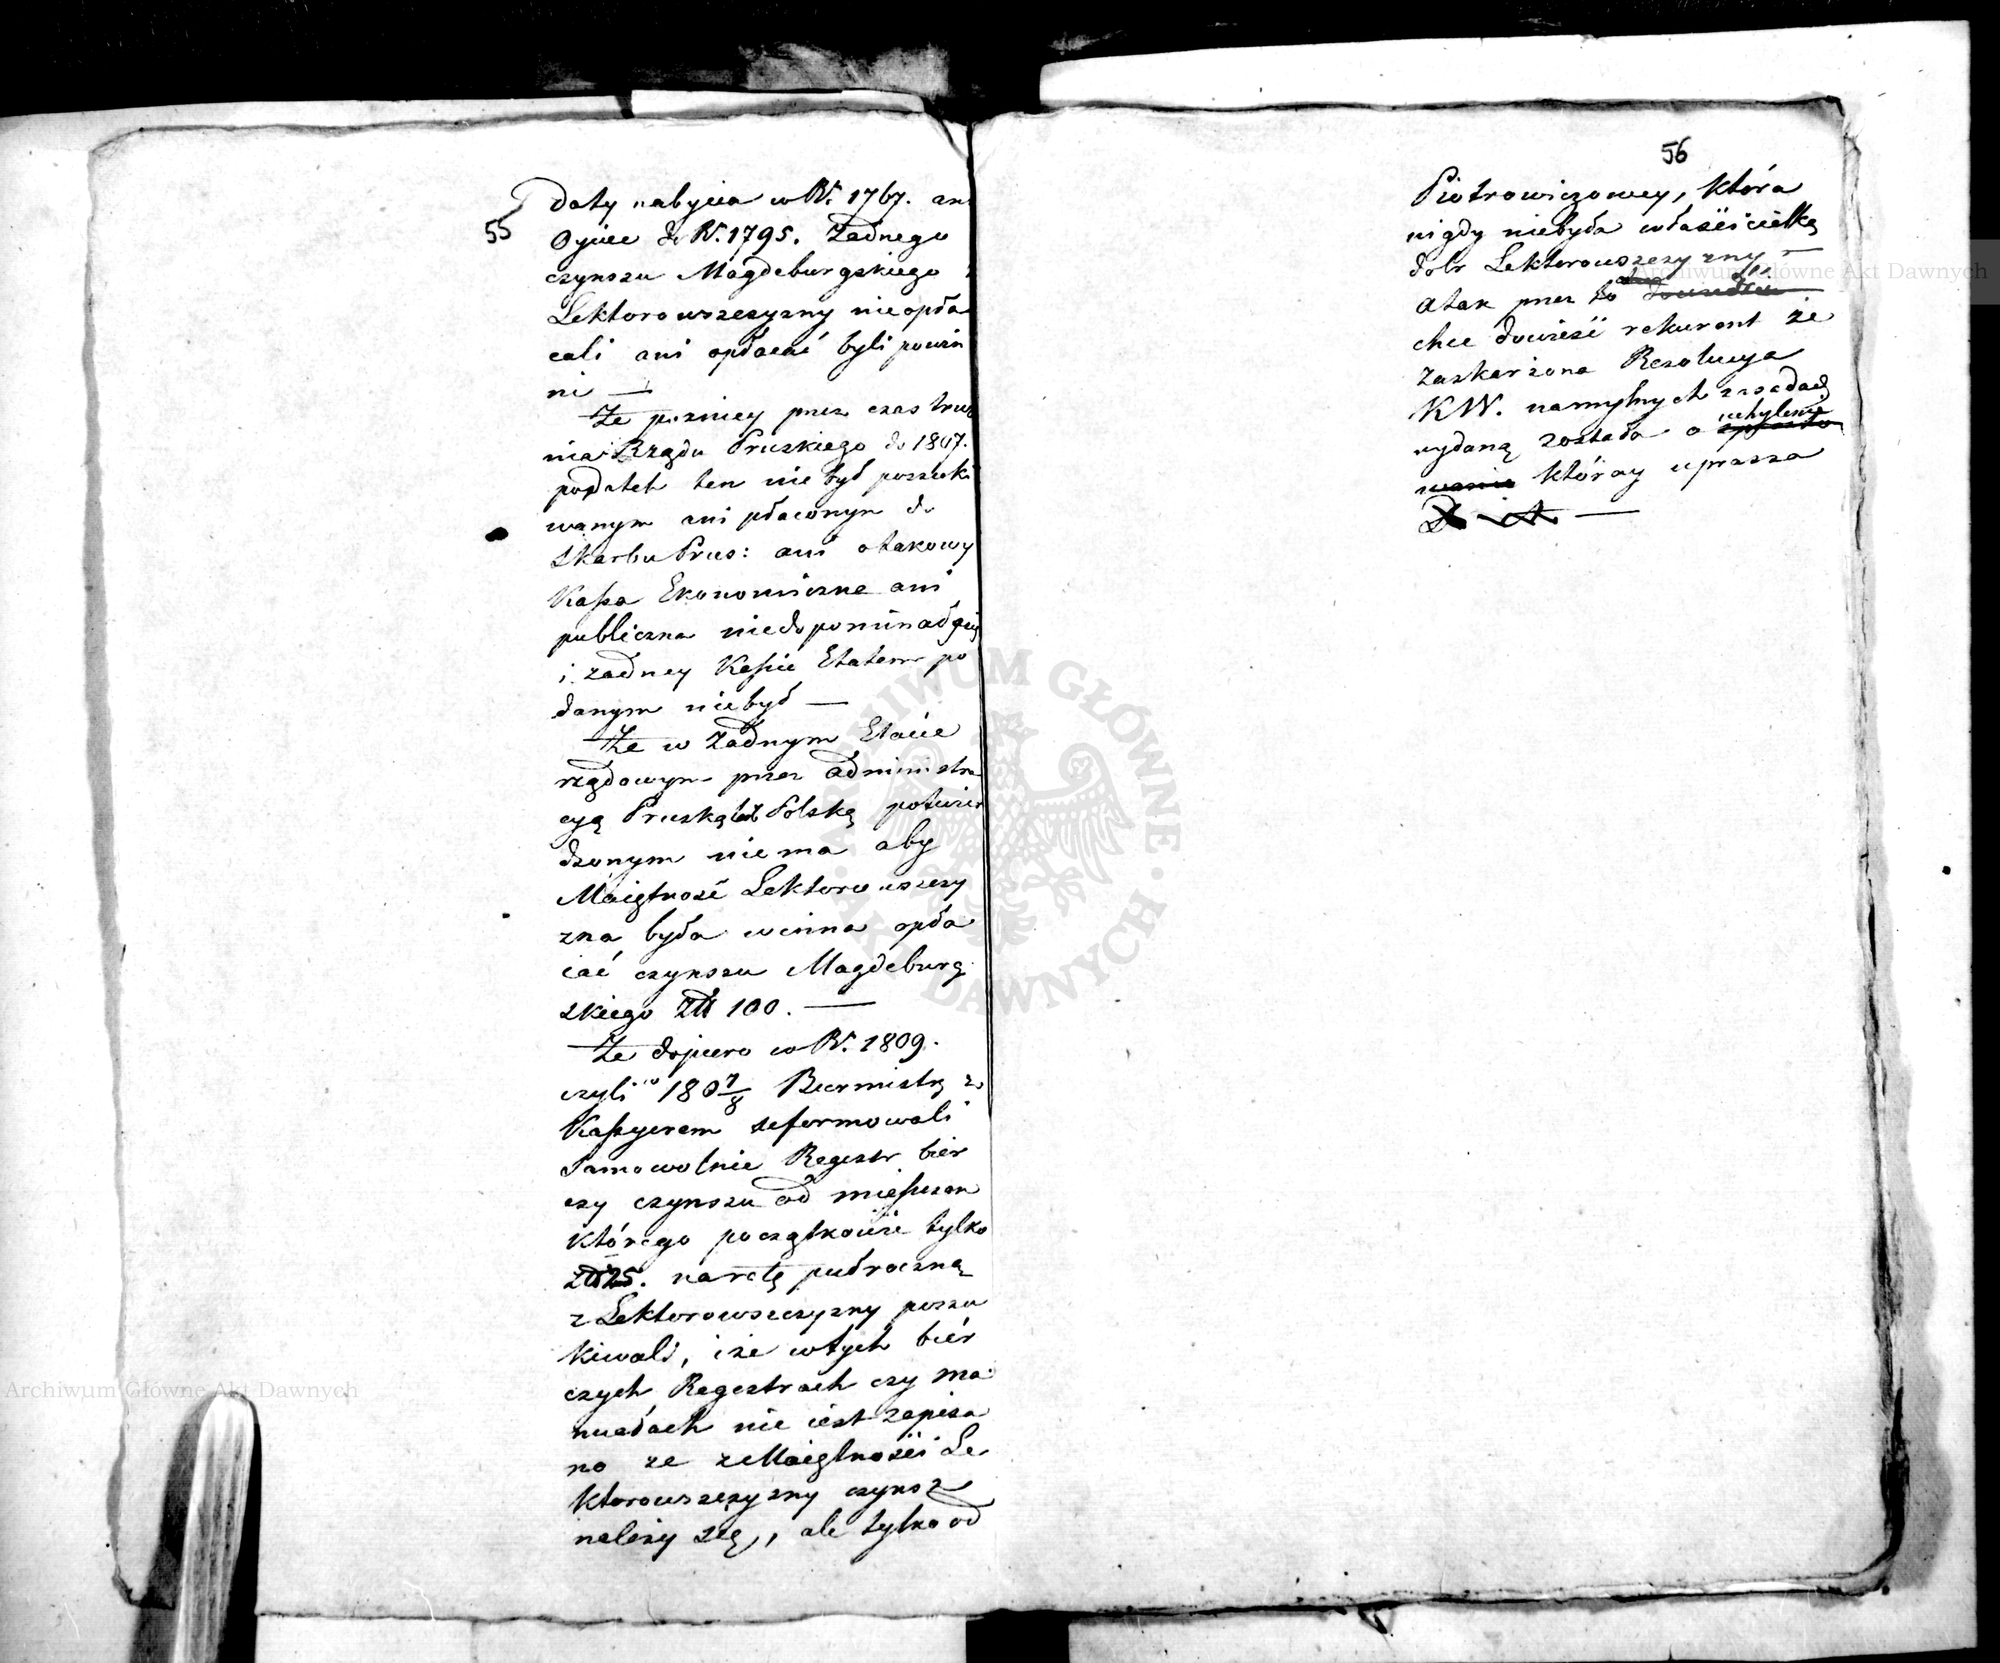 55
Daty nabycia w R. 1767. ani
Oyciec do R. 1795. Zadnego
czynszu Magdeburgskiego z
Lektorowszczyzny nieopła
cali ani opłacać byli powin
ni —
Że pozniey przez czas trwa
nia Rządu Pruskiego do 1807.
podatek ten nie był poszuki
wanym ani płaconym do
Skarbu Prus: ani otakowy
Kassa Ekonomiczna ani
publiczna niedopominał się
i zadney Kassie Etatem po
danym niebył —
Że w Zadnym Etacie
rządowym przez administra
cyą Pruską lub Polską potwier
dzonym niema aby
Maiętność Lektorowszczy
zna była winna opła
cać czynszu Magdeburg
skiego Złł 100. —
Że dopiero w R. 1809.
czyli w 180 7/8 Burmistrz z
Kassyerem seformowali
Samowolnie Regestr bier
czy czynszu od mieszczan
którego początkowie tylko
Złł 25. na ratę pułroczną
z Lektorowszczyzny poszu
kiwali, i że wtych biér
czych Regestrach czy ma
nuałach nie iest zapisa
no ze z Maiętności Le
ktorowszczyzny czynsz
należy się, ale tylko od
56
Piotrowiczowey, która
nigdy niebyła właścicielką
dobr Lektorowszczyzny —
Atak przez to
chce dowieść rekurent że
zaskarzona Rezolucya
KW. namylnych zasadach
wydaną została o uchylenie
któréy uprasza
Archiwum Główne Akt Dawnych
Archiwum Główne Akt Dawnych
ARCHIWUM GŁÓWNE · AKT DAWNYCH ·